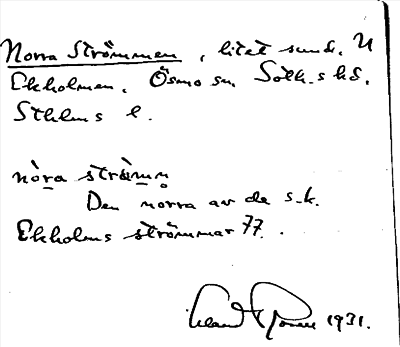 Norra Strömmen, litet sund. U
Ekholmen. Ösmo sn. Soth-s hd.
Sthlms l.
nòra strömn
Den norra av de s.k.
Ekholms strömmar 77.
1931.